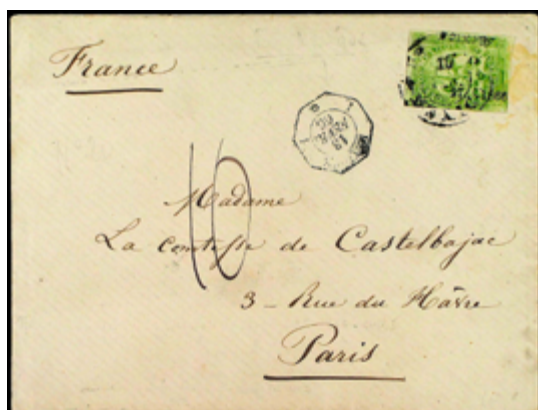 France
10
Madame
La comtesse de Castelbajac
3 - Rue du Hâvre
Paris